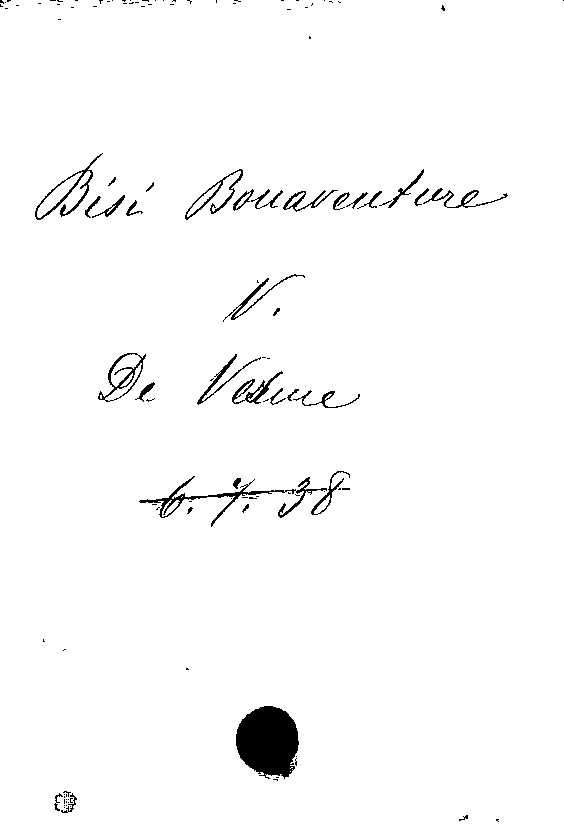 Bisi Bonaventure
V.
De Vesme
6. 7. 38